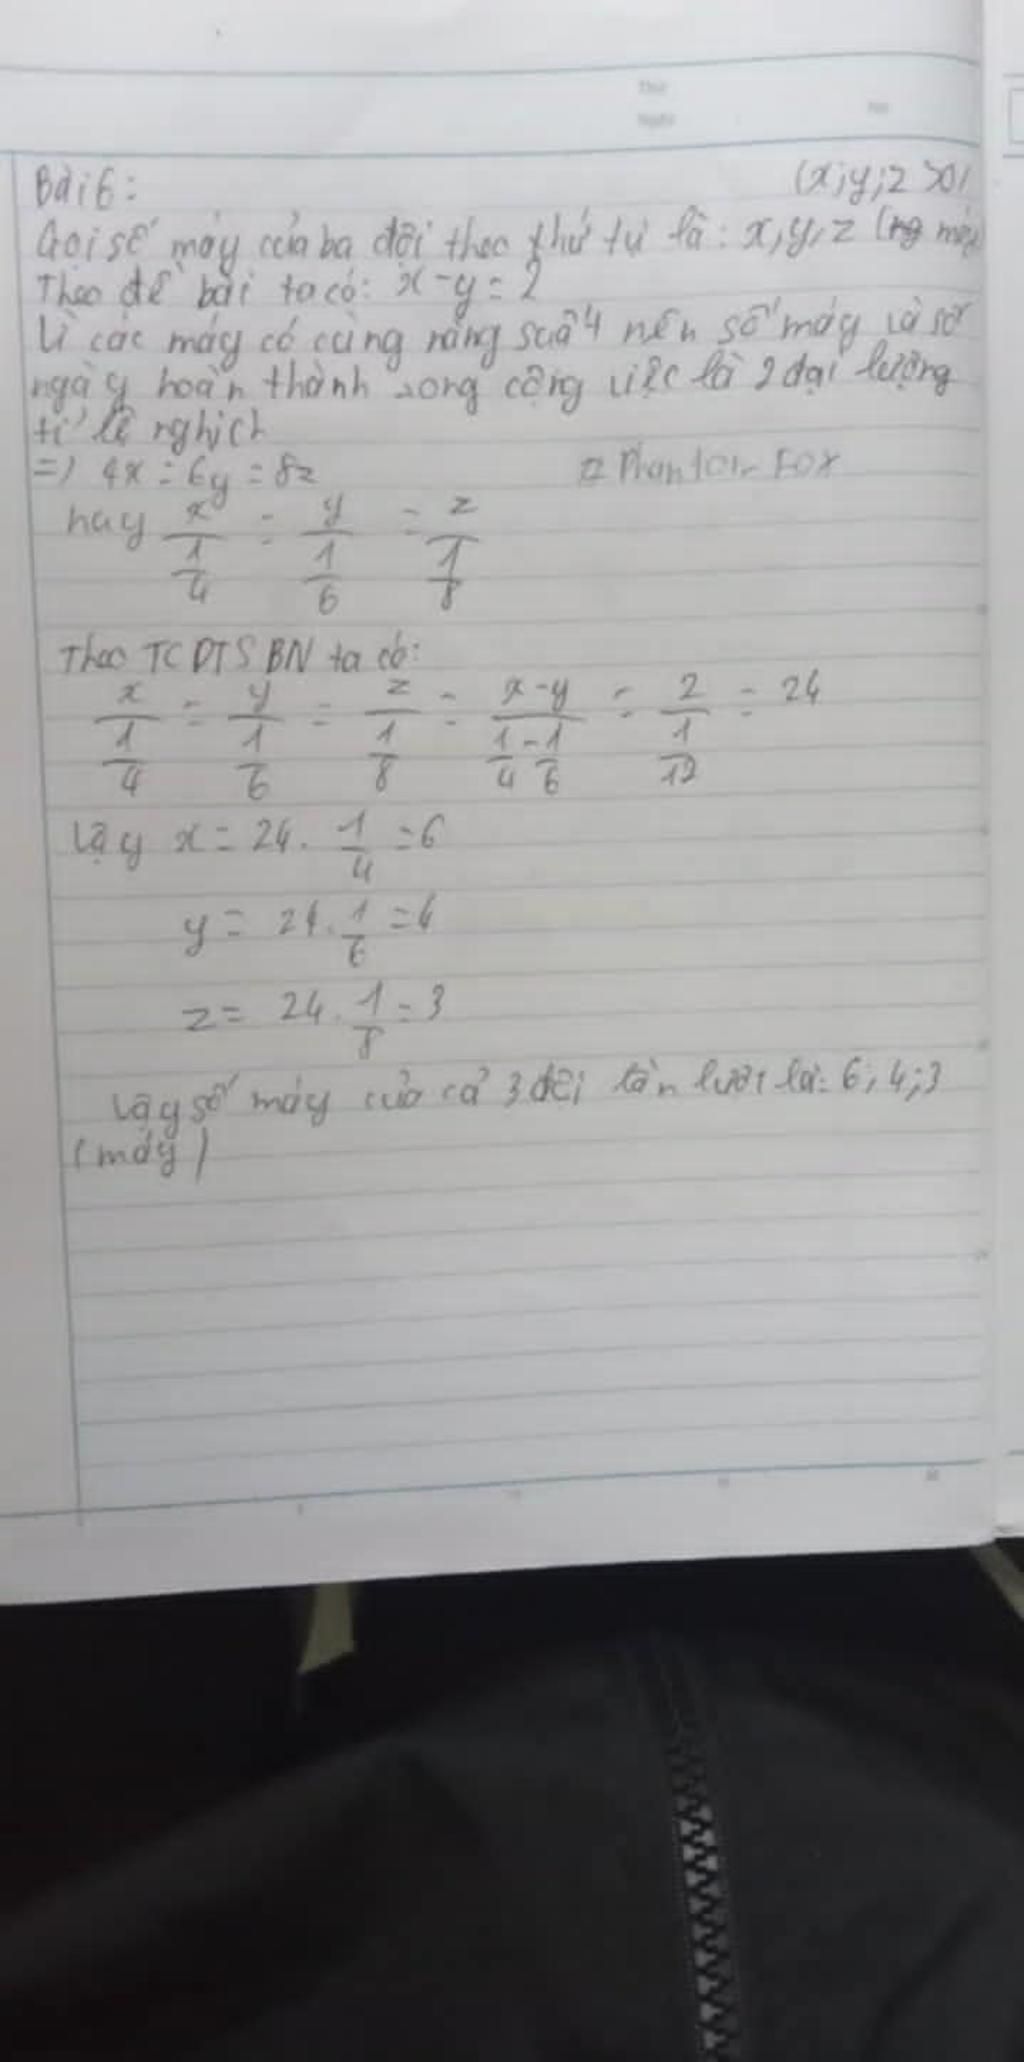 Thứ
Ngày
No
Bài 6: (x;y;z>0)
Gọi số máy của ba đội theo thứ tự là: x,y,z (ng máy)
Theo đề bài ta có: x-y=2
Vì các máy có cùng năng suất nên số máy và số
ngày hoàn thành xong công việc là 2 đại lượng
tỉ lệ nghịch
=> 4x=6y=8z
hay x/(1/4) = y/(1/6) = z/(1/8)
Theo TCDTSBN ta có:
x/(1/4) = y/(1/6) = z/(1/8) = (x-y)/(1/4-1/6) = 2/(1/12) = 24
Vậy x = 24. 1/4 = 6
y = 24. 1/6 = 4
z = 24. 1/8 = 3
Vậy số máy của cả 3 đội lần lượt là: 6; 4; 3
(máy)